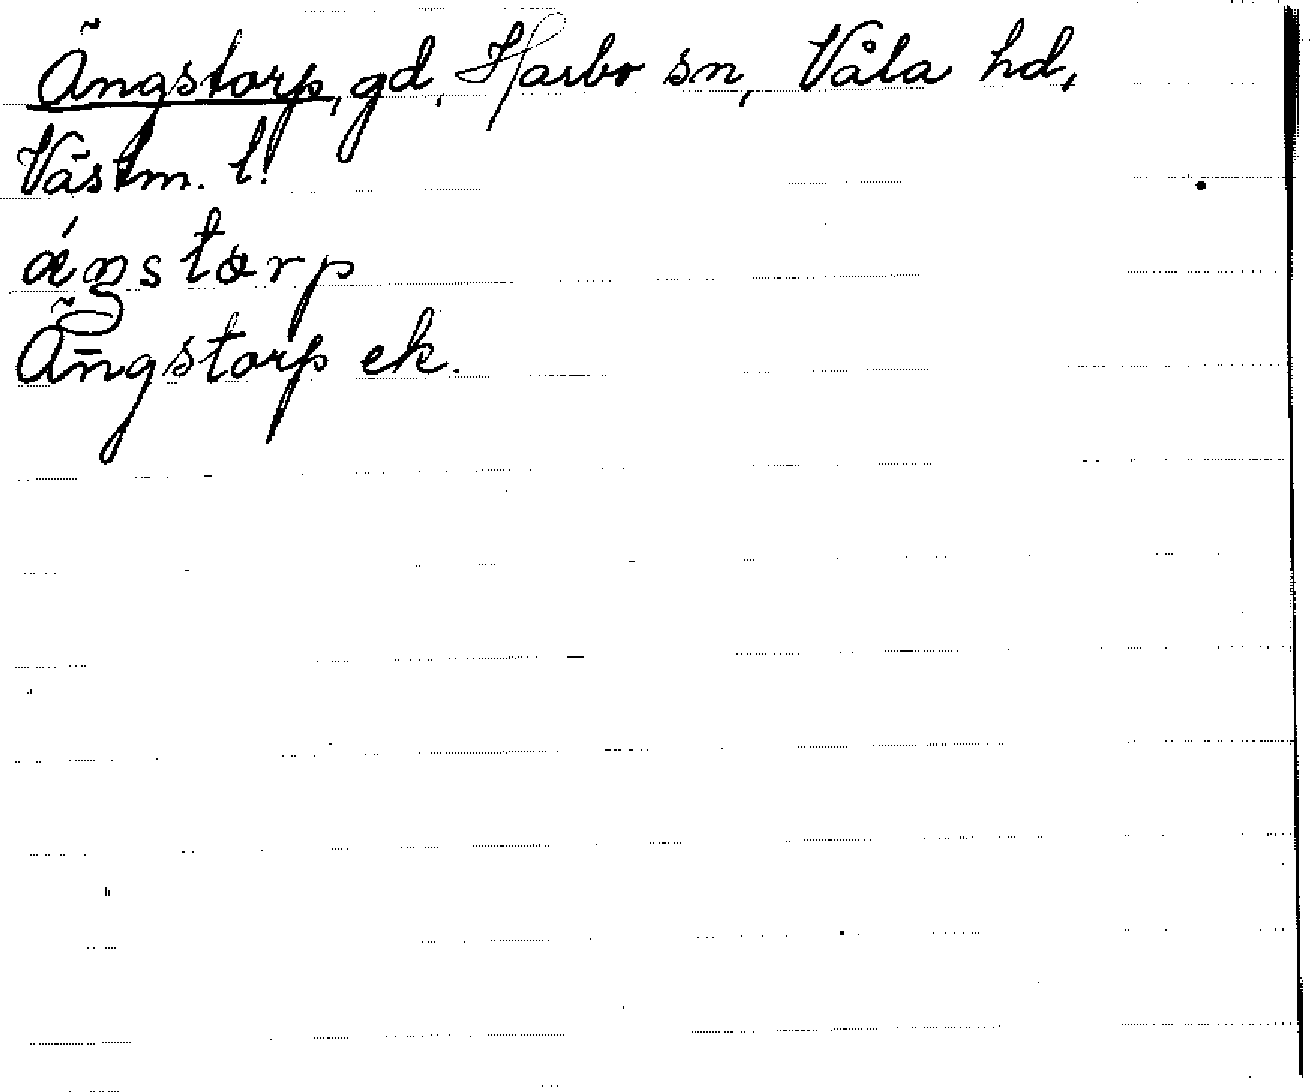 Ängstorp, gd, Harbo sn, Våla hd,
Västm. l.
ǽŋstɔrp
Ängstorp ek.